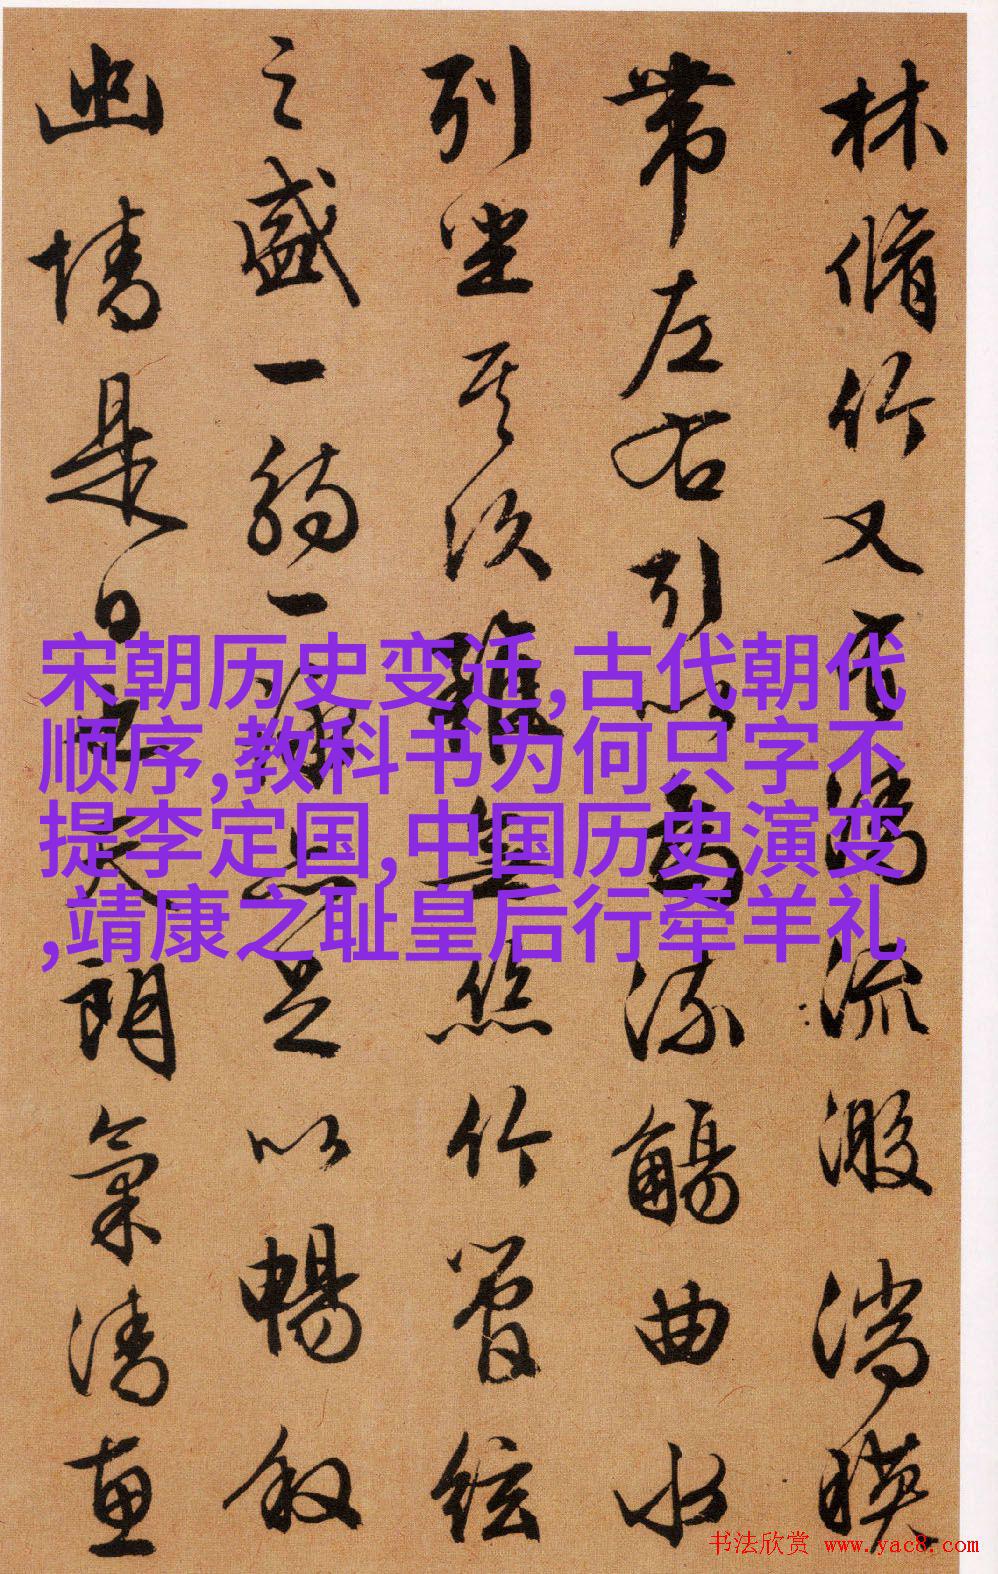 林脩竹又有清流激湍暎
带左右引以為流觴曲水
列坐其次雖無絲竹管絃
之盛一觴一詠亦足以暢敘
幽情是日也天朗氣清惠
宋朝历史变迁,古代朝代
顺序,教科书为何只字不
提李定国,中国历史演变
,靖康之耻皇后行牵羊礼
书法欣赏 www.yac8.com